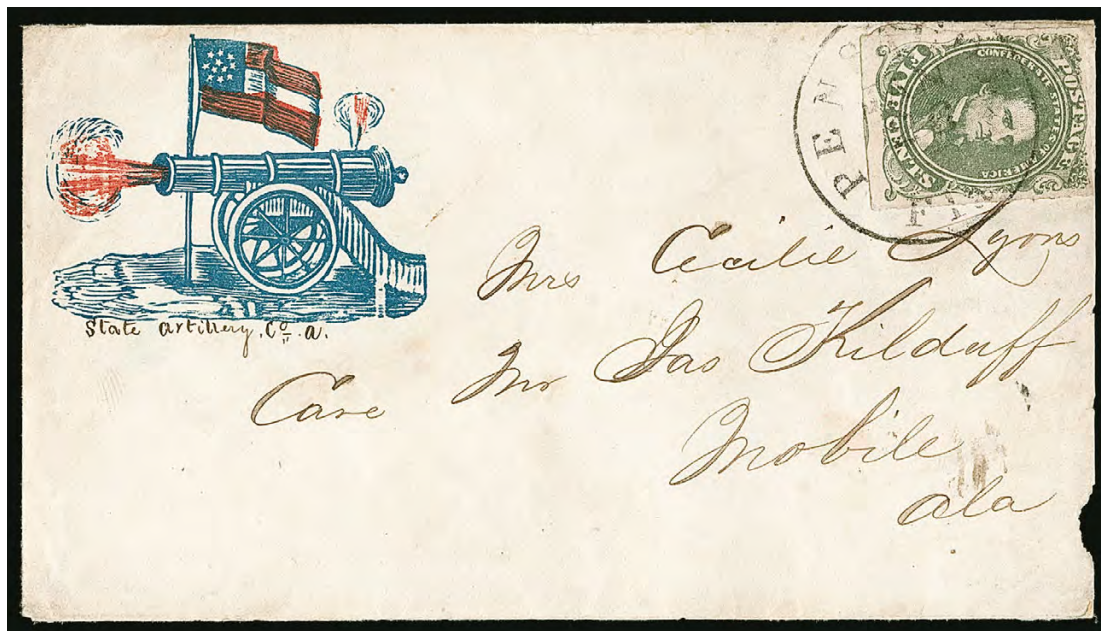 PENS
FLA
POSTAGE
CONFEDERATE STATES OF AMERICA
FIVE CENTS
State Artillery. Co. A.
Mrs Cecilie Lyons
Care Mr Jas Kilduff
Mobile
Ala